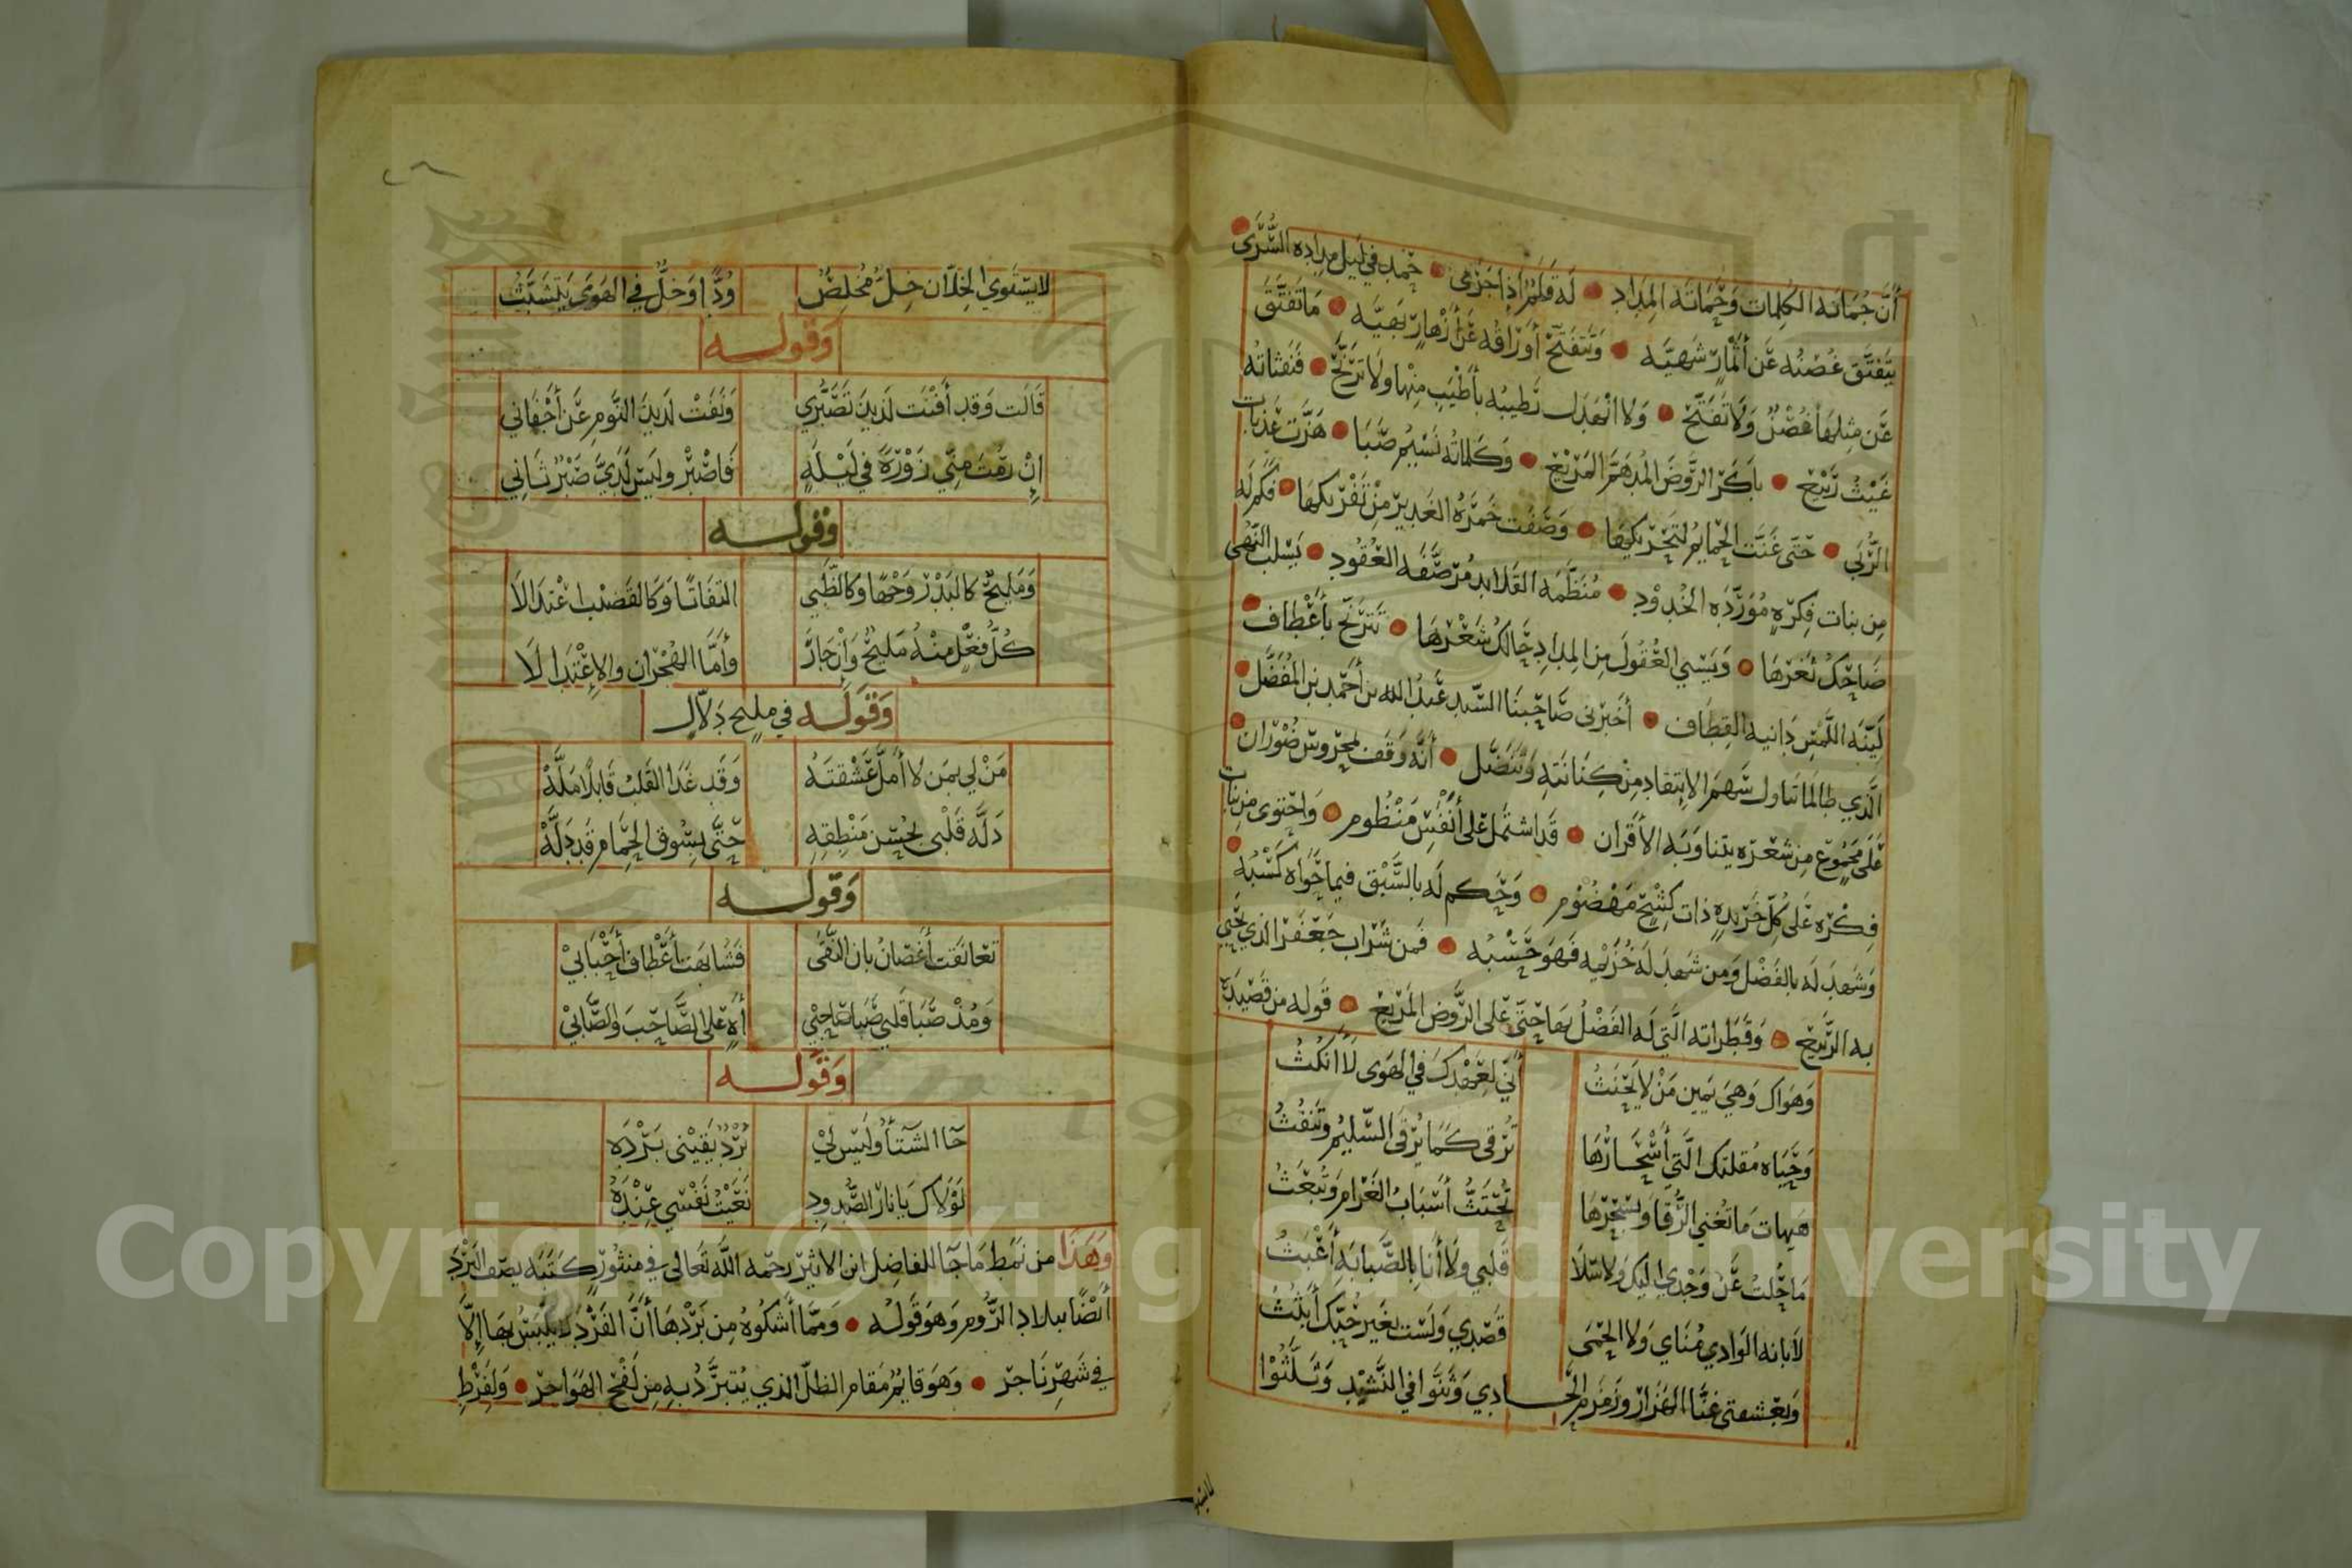 أن جمانه الكلمات وختمانه المداد • له قلم إذا جرى • حمد في ليل مداده السرى •
يتفتق غصنه عن أثمار شهيه • وتتفتح أوراقه عن أزهار بهيه • ما تفتق
عن مثلها غصن ولا تفتح • ولا انهدل نطيبه بأطيب منها ولا ترنح • فنفثاته
غيث ربيع • باكر الروض المدهم المريع • وكلماته نسيم صبا • هزت عذبات
الربى • حتى غنت الحمايم لتحريكها • وصفت خمرة الغدير من تفريكها • فكم له
من بنات فكره مورده الخدود • منظمه القلايد مرصفه العقود • يسلب النهى
ضاحك ثغرها • ويسبي العقول من المداد حالك شعرها • تترنح بأعطاف •
لينه اللمس دانيه القطاف • أخبرني صاحبنا السيد عبد الله بن أحمد بن المفضل •
الذي طالما تناول سهم الانتقاد من كنانته وتنضل • أنه وقف لمحروس ضوران •
على مجموع من شعره يتناوبه الأقران • قد اشتمل على أنفس منظوم • واحتوى من بنات
فكره على كل خريده ذات كشح مهضوم • وحكم له بالسبق فيما حواه كسبه •
وشهد له بالفضل ومن شهد له خزيمه فهو حسبه • فمن شراب جعفر الذي يحيي
به الربيع • وقطراته التي له الفضل بها حتى على الروض المريع • قوله من قصيده
وهواك وهي يمين من لا يحنث أني لعهدك في الهوى لا أنكث
وحياه مقلتك التي أسحارها ترقى كما يرقى السليم وتنفث
هيهات ما تغني الرقا وبسحرها تحتث أسباب الغرام وتبعث
ما حلت عن وجدي اليك ولا سلا قلبي ولا أنا بالصبابة أعبث
لا بانه الوادي مناي ولا الحمى قصدي ولست بغير حبك أبثث
وبعشقتي غنا الهزار وزمزم الحادي وثنوا في النشيد وثلثوا
لا يستوي
لا يستوي الخلان خل مخلص ودا وخل في الهوى يتشبث
وقوله
قالت وقد أفنت لديذ تصبري ونفت لديذ النوم عن أجفاني
إن رمت مني زورة في ليلة فاصبر وليس لدي صبر ثاني
وقوله
ومليح كالبدر وجها وكالظبي التفاتا وكالقضب اعتدالا
كل فعل منه مليح وإن جار وأما الهجران والاعتدا لا
وقوله في مليح دلال
من لي بمن لا أمل عشقته وقد غدا القلب قابلا مله
دله قلبي بحسن منطقه حتى بسوق الحمام قد دله
وقوله
تعانقت أغصان بان النقى فشابهت أعطاف أحبابي
ومذ صبا قلبي صبا صاحبي آه على الصاحب والصابي
وقوله
جا الشتا وليس لي برد يقيني برده
لولاك يا نار الصدود نعيت نفسي عنده
وهذا من نمط ما جا للفاضل ابن الاثير رحمه الله تعالى في منثور كتبه يصف البرد
أيضا ببلاد الروم وهو قوله • ومما أشكوه من بردها أن الفرو لا يلبس بها إلا
في شهر ناجر • وهو قايم مقام الظل الذي يتبرد به من لفح الهواجر • ولفرط
Copyright © King Saud University